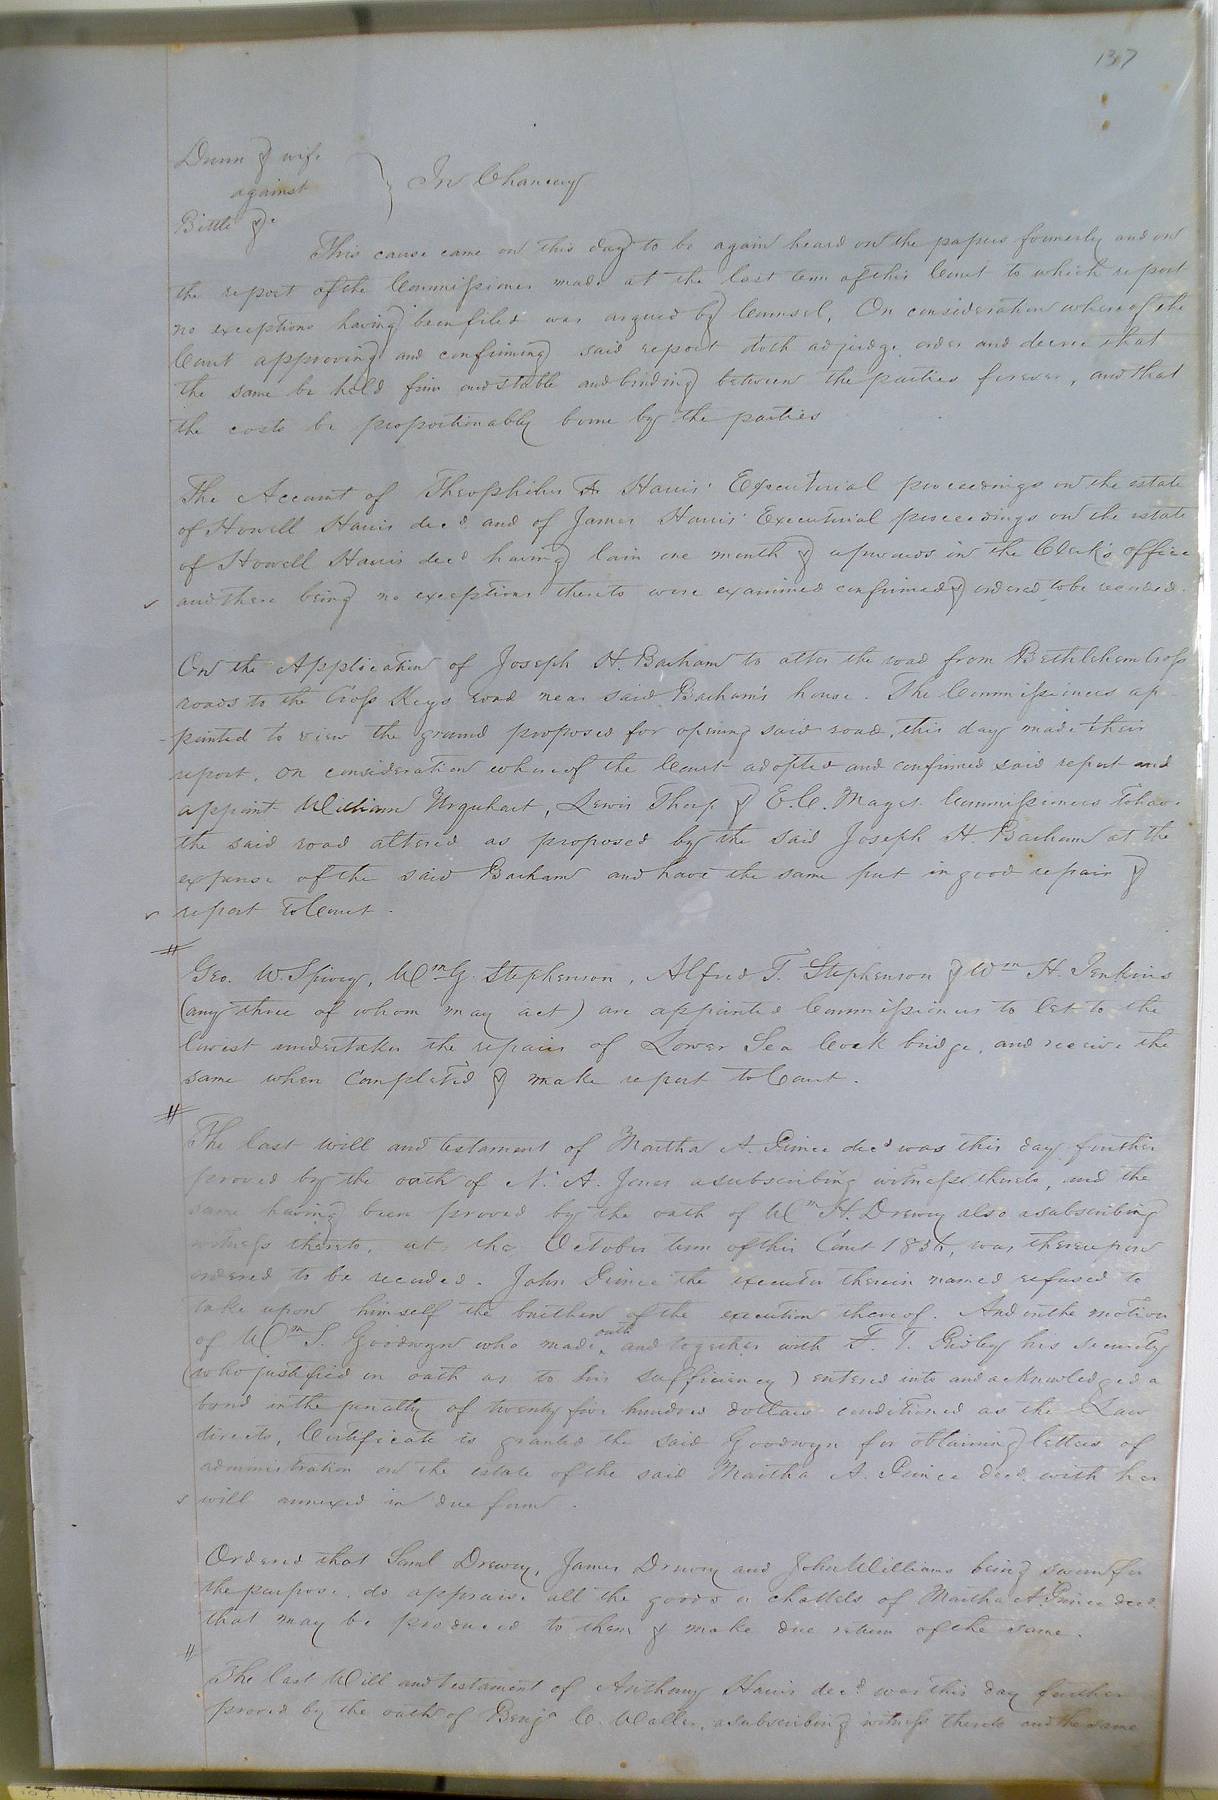 137
Dunn & wife
against
Bittle &c
In Chancery
This cause came on this day to be again heard on the papers formerly and on
the report of the Commissioner made at the last term of this Court to which report
no exceptions having been filed was argued by Counsel, On consideration whereof the
Court approving and confirming said report doth adjudge order and decree that
the same be held firm and stable and binding between the parties forever, and that
the costs be proportionably borne by the parties
The Account of Theophilus Harris' Executorial proceedings on the estate
of Howell Harris decd and of James Harris' Executorial proceedings on the estate
of Howell Harris decd having lain one month & upwards in the Clerk's office
and there being no exceptions thereto were examined confirmed & ordered to be recorded.
On the Application of Joseph H. Barham to alter the road from Bethlehem Cross
roads to the Cross Keys road near said Barham's house. The Commissioners ap
-pointed to view the ground proposed for opening said road, this day made their
report, on consideration whereof the Court adopted and confirmed said report and
appoint William Urquhart, Lewis Thorp & E. C. Maget Commissioners to have
the said road altered as proposed by the said Joseph H. Barham at the
expense of the said Barham and have the same put in good repair &
report to Court.
Geo. W. Spivey, Wm G. Stephenson, Alfred T. Stephenson & Wm H. Jenkins
(any three of whom may act) are appointed Commissioners to let to the
lowest undertaker the repairs of Lower Sea Cock bridge, and receive the
same when completed & make report to Court.
The last will and testament of Martha A. Prince decd was this day further
proved by the oath of N. A. Jones a subscribing witness thereto, and the
same having been proved by the oath of Wm H. Drewry also a subscribing
witness thereto, at the October term of this Court was thereupon
ordered to be recorded. John Prince the executor therein named refused to
take upon himself the burthen of the execution thereof. And on the motion
of Wm S. Goodwyn who made oath and together with F. T. Ridley his security
(who justified on oath as to his sufficiency) entered into and acknowledged a
bond in the penalty of twenty five hundred dollars conditioned as the Law
directs, Certificate is granted the said Goodwyn for obtaining letters of
administration on the estate of the said Martha A. Prince decd. with her
will annexed in due form.
Ordered that Saml Drewry, James Drewry and John Williams being sworn for
the purpose, do appraise all the goods & chattels of Martha A. Prince decd.
that may be produced to them & make due return of the same.
The last Will and testament of Anthony Harris decd was this day further
proved by the oath of Benja C. Waller, a subscribing witness thereto and the same